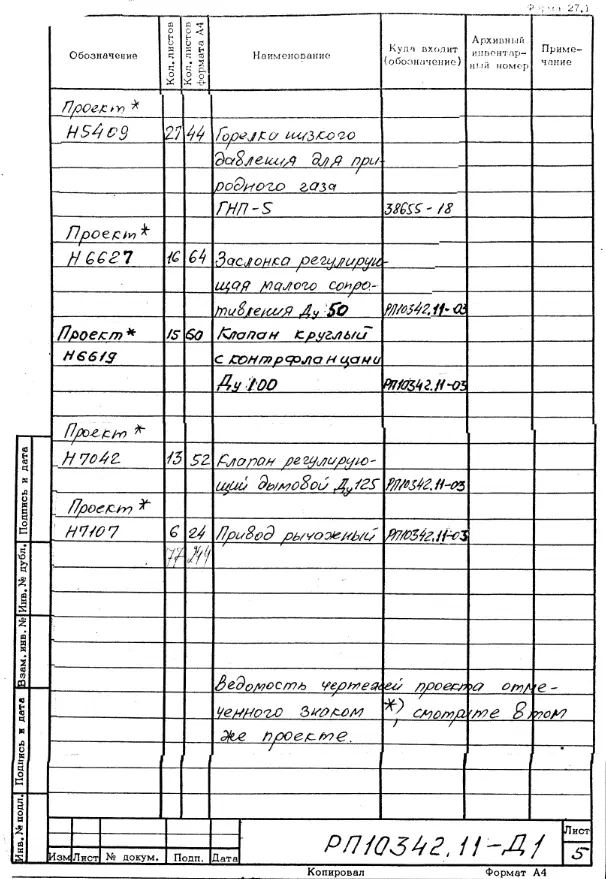 Форма 27.1
Обозначение
Кол. листов
Кол. листов формата А4
Наименование
Куда входит
(обозначение)
Архивный
инвентар-
ный номер
Приме-
чание
Проект *
Н5409 27 44 Горелка низкого
давления для при-
родного газа
ГНП-5 38655-18
Проект *
Н6627 16 64 Заслонка регулирую-
щая малого сопро-
тивления Ду 50 РП10342.11-03
Проект * 15 60 Клапан круглый
Н6619 с контрфланцами
Ду 100 РП10342.11-03
Проект *
Н7042 13 52 Клапан регулирую-
щий дымовой Ду 125 РП10342.11-03
Проект *
Н7107 6 24 Привод рычажный РП10342.11-03
77 244
Ведомость чертежей проекта отме-
ченного знаком *), смотрите в том
же проекте.
Подпись и дата
Инв. № дубл.
Взам. инв. №
Подпись и дата
Инв. № подл.
Изм Лист № докум. Подп. Дата
РП10342.11-Д1
Лист
5
Копировал Формат А4